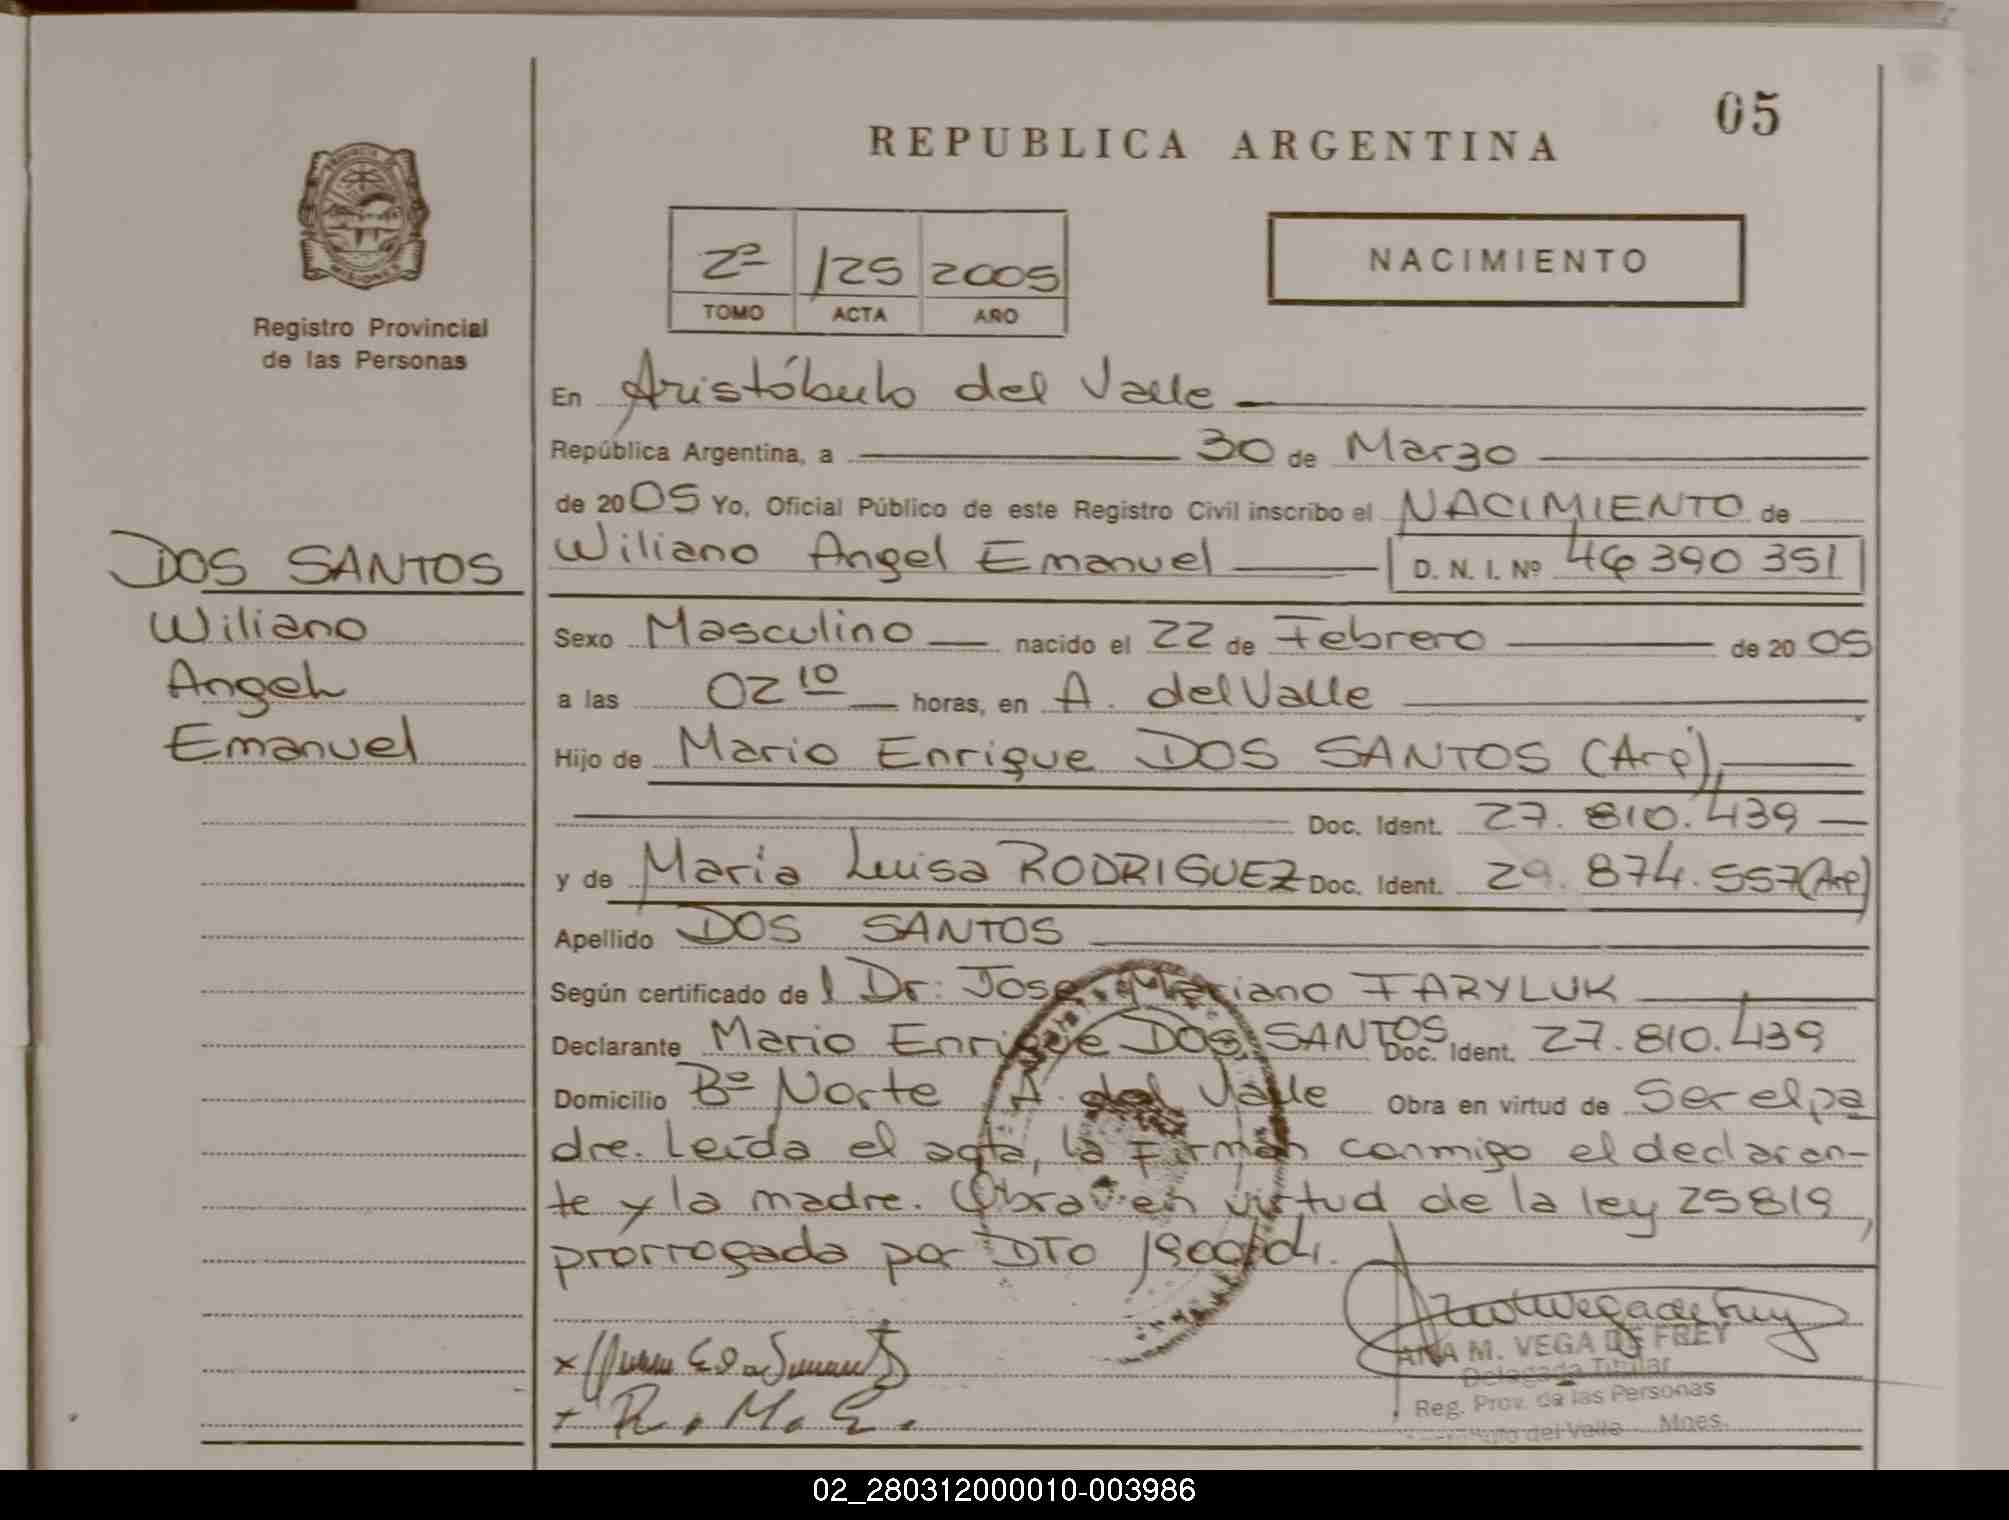 05
REPUBLICA ARGENTINA
PROVINCIA
MISIONES
Registro Provincial
de las Personas
2º 125 2005
TOMO ACTA AÑO
NACIMIENTO
En Aristóbulo del Valle
República Argentina, a 30 de Marzo
de 2005 Yo, Oficial Público de este Registro Civil inscribo el NACIMIENTO de
Wiliano Angel Emanuel D. N. I. Nº 46 390 351
DOS SANTOS
Wiliano
Angel
Emanuel
Sexo Masculino nacido el 22 de Febrero de 2005
a las 02 10 horas, en A. del Valle
Hijo de Mario Enrique DOS SANTOS (Arg),
Doc. Ident. 27.810.439
y de Maria Luisa RODRIGUEZ Doc. Ident. 29.874.557 (Arg)
Apellido DOS SANTOS
Según certificado del Dr: Jose Mariano TARYLUK
Declarante Mario Enrique DOS SANTOS Doc. Ident. 27.810.439
Domicilio Bº Norte A. del Valle Obra en virtud de ser el pa
dre. Leída el acta, la firman conmigo el declaran-
te y la madre. Obra en virtud de la ley 25819,
prorrogada por DTO
ANA M. VEGA DE FREY
Delegada Titular
Reg. Prov. de las Personas
del Valle Mnes.
x
+ R. M. E.
02_280312000010-003986